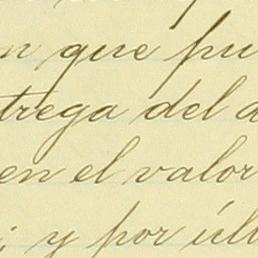 n que pu
trega del d
en el valor
; y por últ